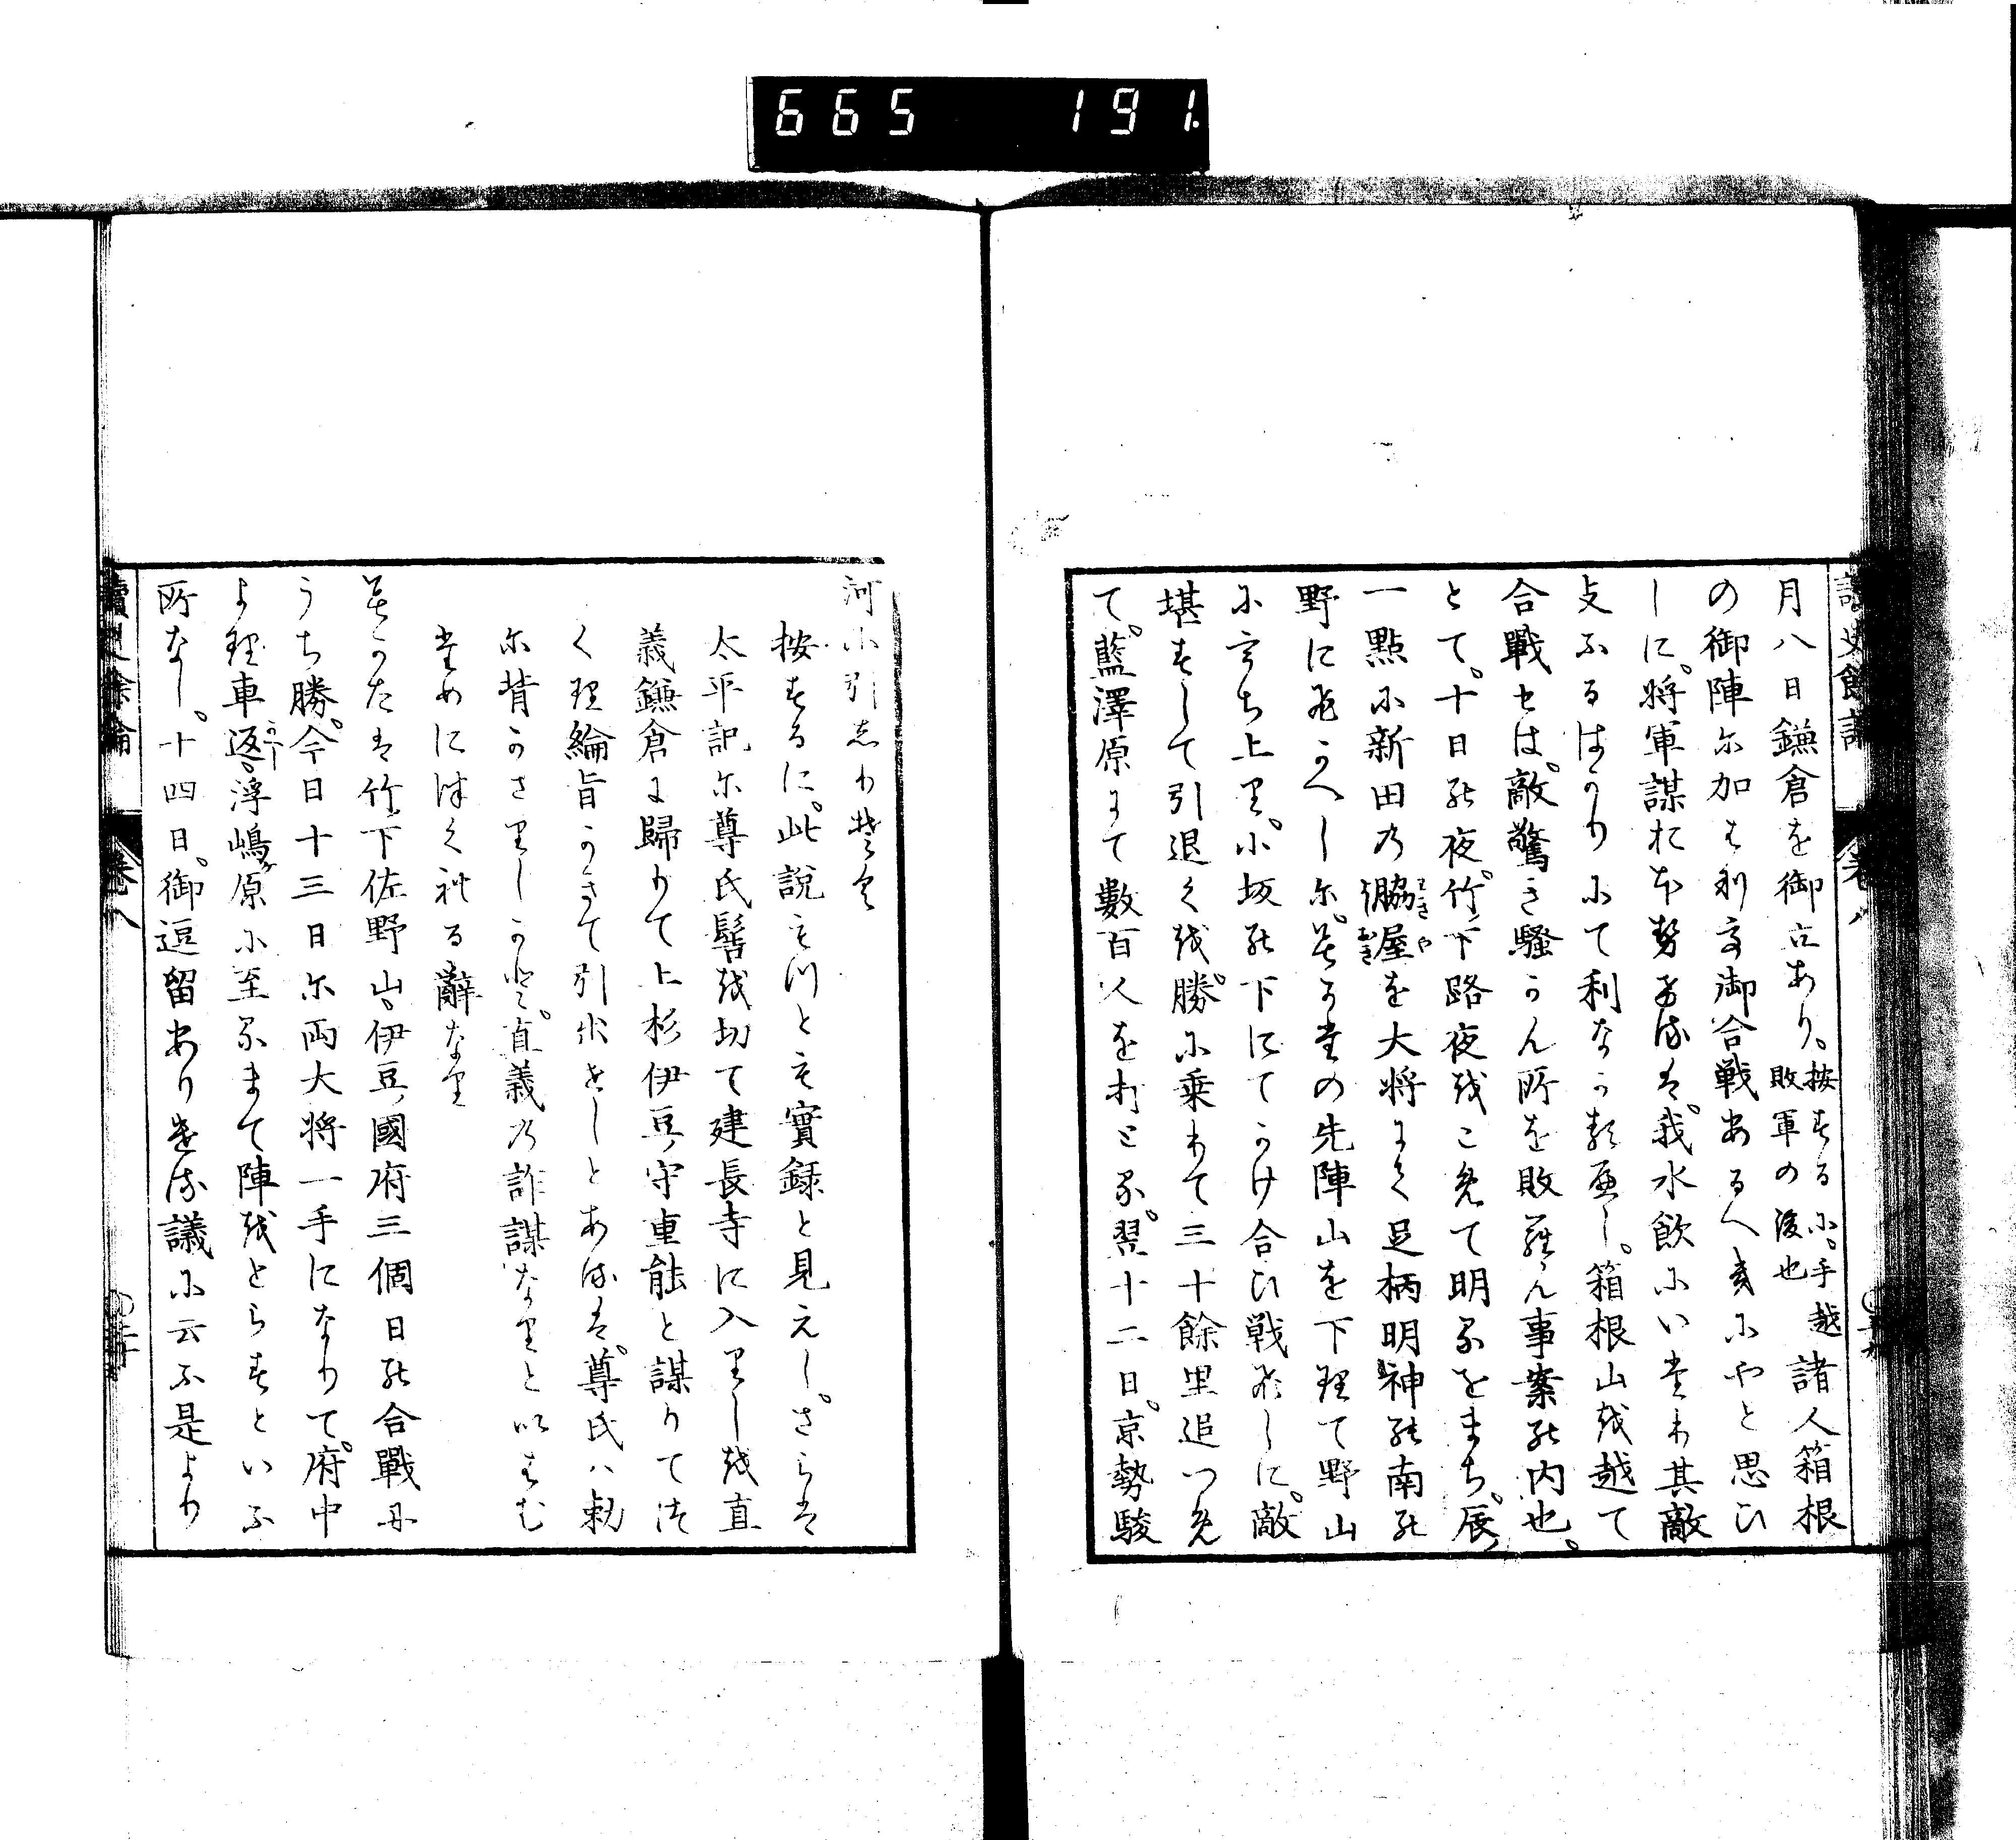 665 191
月八日鎌倉を御立あり。按するに。手越敗軍の後也諸人箱根
の御陣に加はり御合戦あるへきにやと思ひ
しに。将軍謀におゐて我水飲にいたり其敵
支ふるはかりにて利なかるへし。箱根山を越て
合戰せは。敵驚き騒かん所を敗らん事案の内也。
とて。十日の夜。竹ノ下路夜をこめて明るをまち。辰ノ
一點に新田の脇屋を大将にて足柄明神の南の
野にひかへしに。みかたの先陣山を下りて野山
にうち上り。小坂の下にてかけ合ひ戦ひしに。敵
堪すして引退くを。勝に乗りて三十餘里追つめ
て。藍澤原にて數百人を打とる。翌十二日。京勢駿
河に引しりそく
按するに。此説もつとも實録と見えし。さらは
太平記に尊氏髻を切て建長寺に入りしを直
義鎌倉に歸りて上杉伊豆ノ守重能と謀りてつ
く理綸旨かきて引出せしとあるは。尊氏ハ勅
に背かさりしかと。直義の詐謀なりといはむ
ためにはくれる辭なり
みかたは竹ノ下佐野山。伊豆ノ國府三個日の合戰に
うち勝。今日十三日に両大将一手になりて。府中
より車返。浮嶋ケ原に至るまて陣をとらすといふ
所なし。十四日。御逗留ありける議に云ふ是より
讀史餘論 卷八